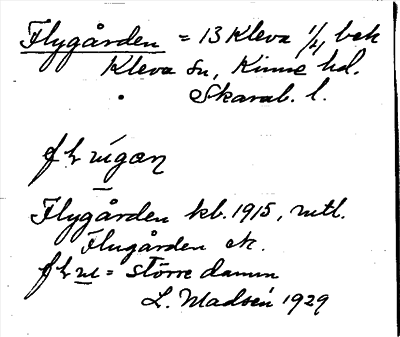 Flygården = 13 Kleva 1/4, bek
Kleva sn, Kinne hd.
Skarab. l.
flugan
Flygården kb. 1915, uttl.
Flugården etc.
flu = större damm
L. Madsén 1929